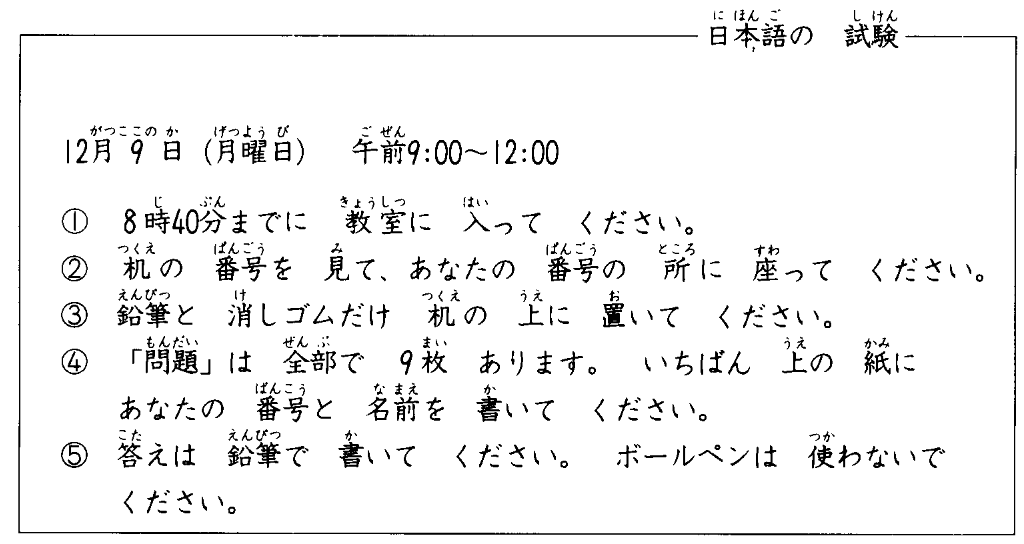 日本語の 試験
12月 9 日 (月曜日) 午前9:00〜12:00
① 8時40分までに 教室に 入って ください。
② 机の 番号を 見て、あなたの 番号の 所に 座って ください。
③ 鉛筆と 消しゴムだけ 机の 上に 置いて ください。
④ 「問題」は 全部で 9枚 あります。 いちばん 上の 紙に
あなたの 番号と 名前を 書いて ください。
⑤ 答えは 鉛筆で 書いて ください。 ボールペンは 使わないで
ください。